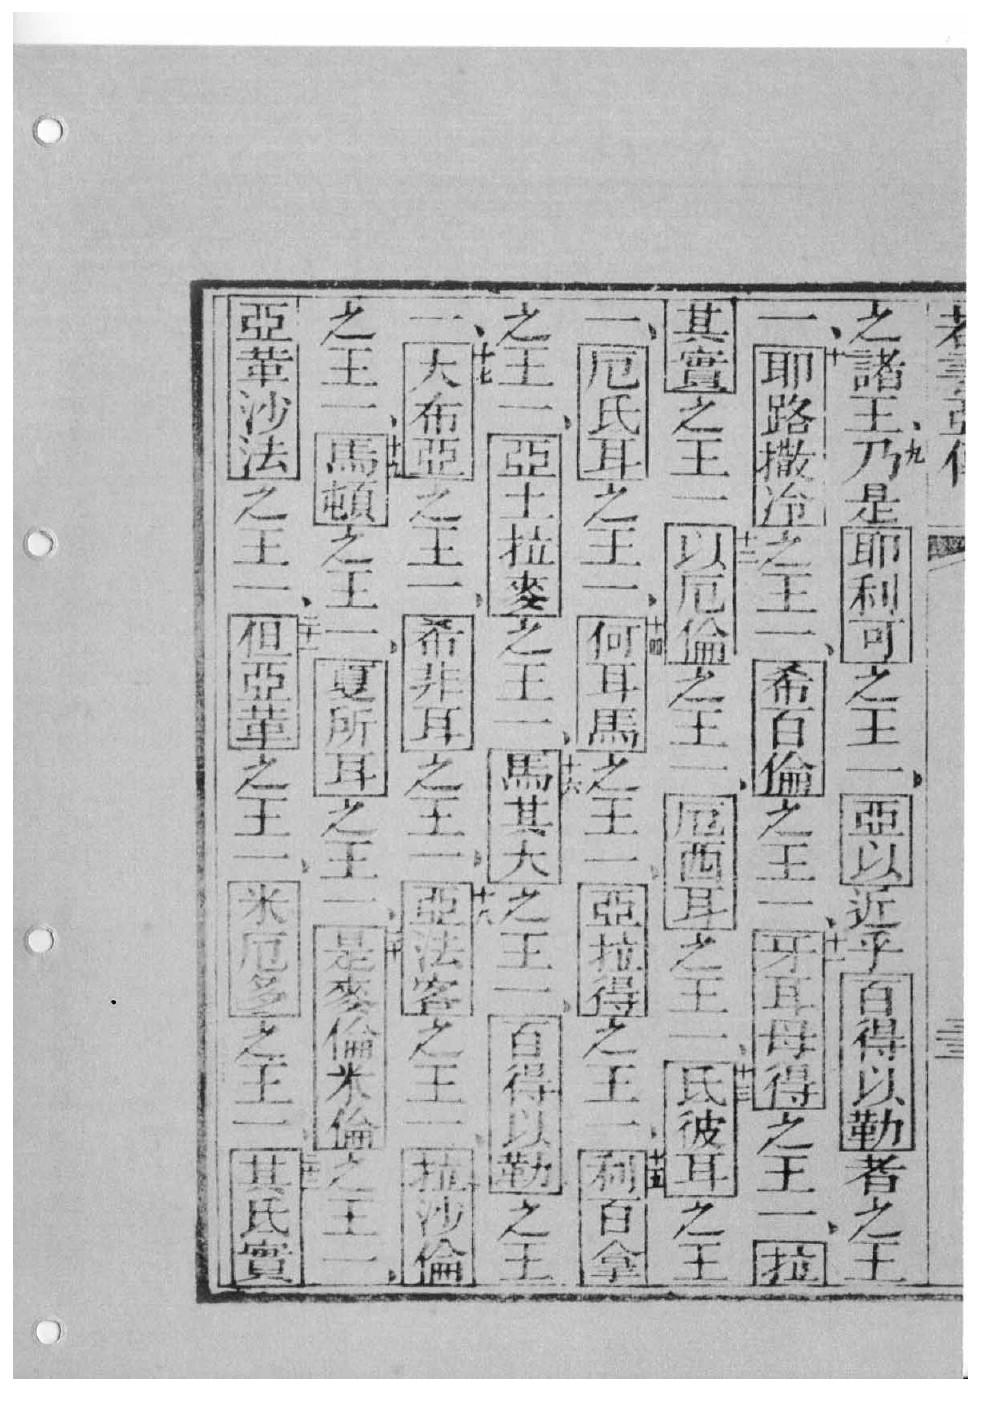 若書亞傳
之諸王、九乃是耶利可之王一、亞以近乎百得以勒者之王
一、十耶路撒冷之王一、希百倫之王一、十一牙耳母得之王一、拉
其實之王一十二以厄倫之王一、厄西耳之王一、十三氏彼耳之王
一、厄氏耳之王一、十四何耳馬之王一、亞拉得之王一、十五利百拿
之王一、亞土拉麥之王一、十六馬其大之王一、百得以勒之王
一、十七大布亞之王一、希非耳之王一、十八亞法客之王一、拉沙倫
之王一、十九馬頓之王一、夏所耳之王一、二十是麥倫米倫之王一、
亞革沙法之王一、二十一但亞革之王一、米厄多之王一、二十二其氏實